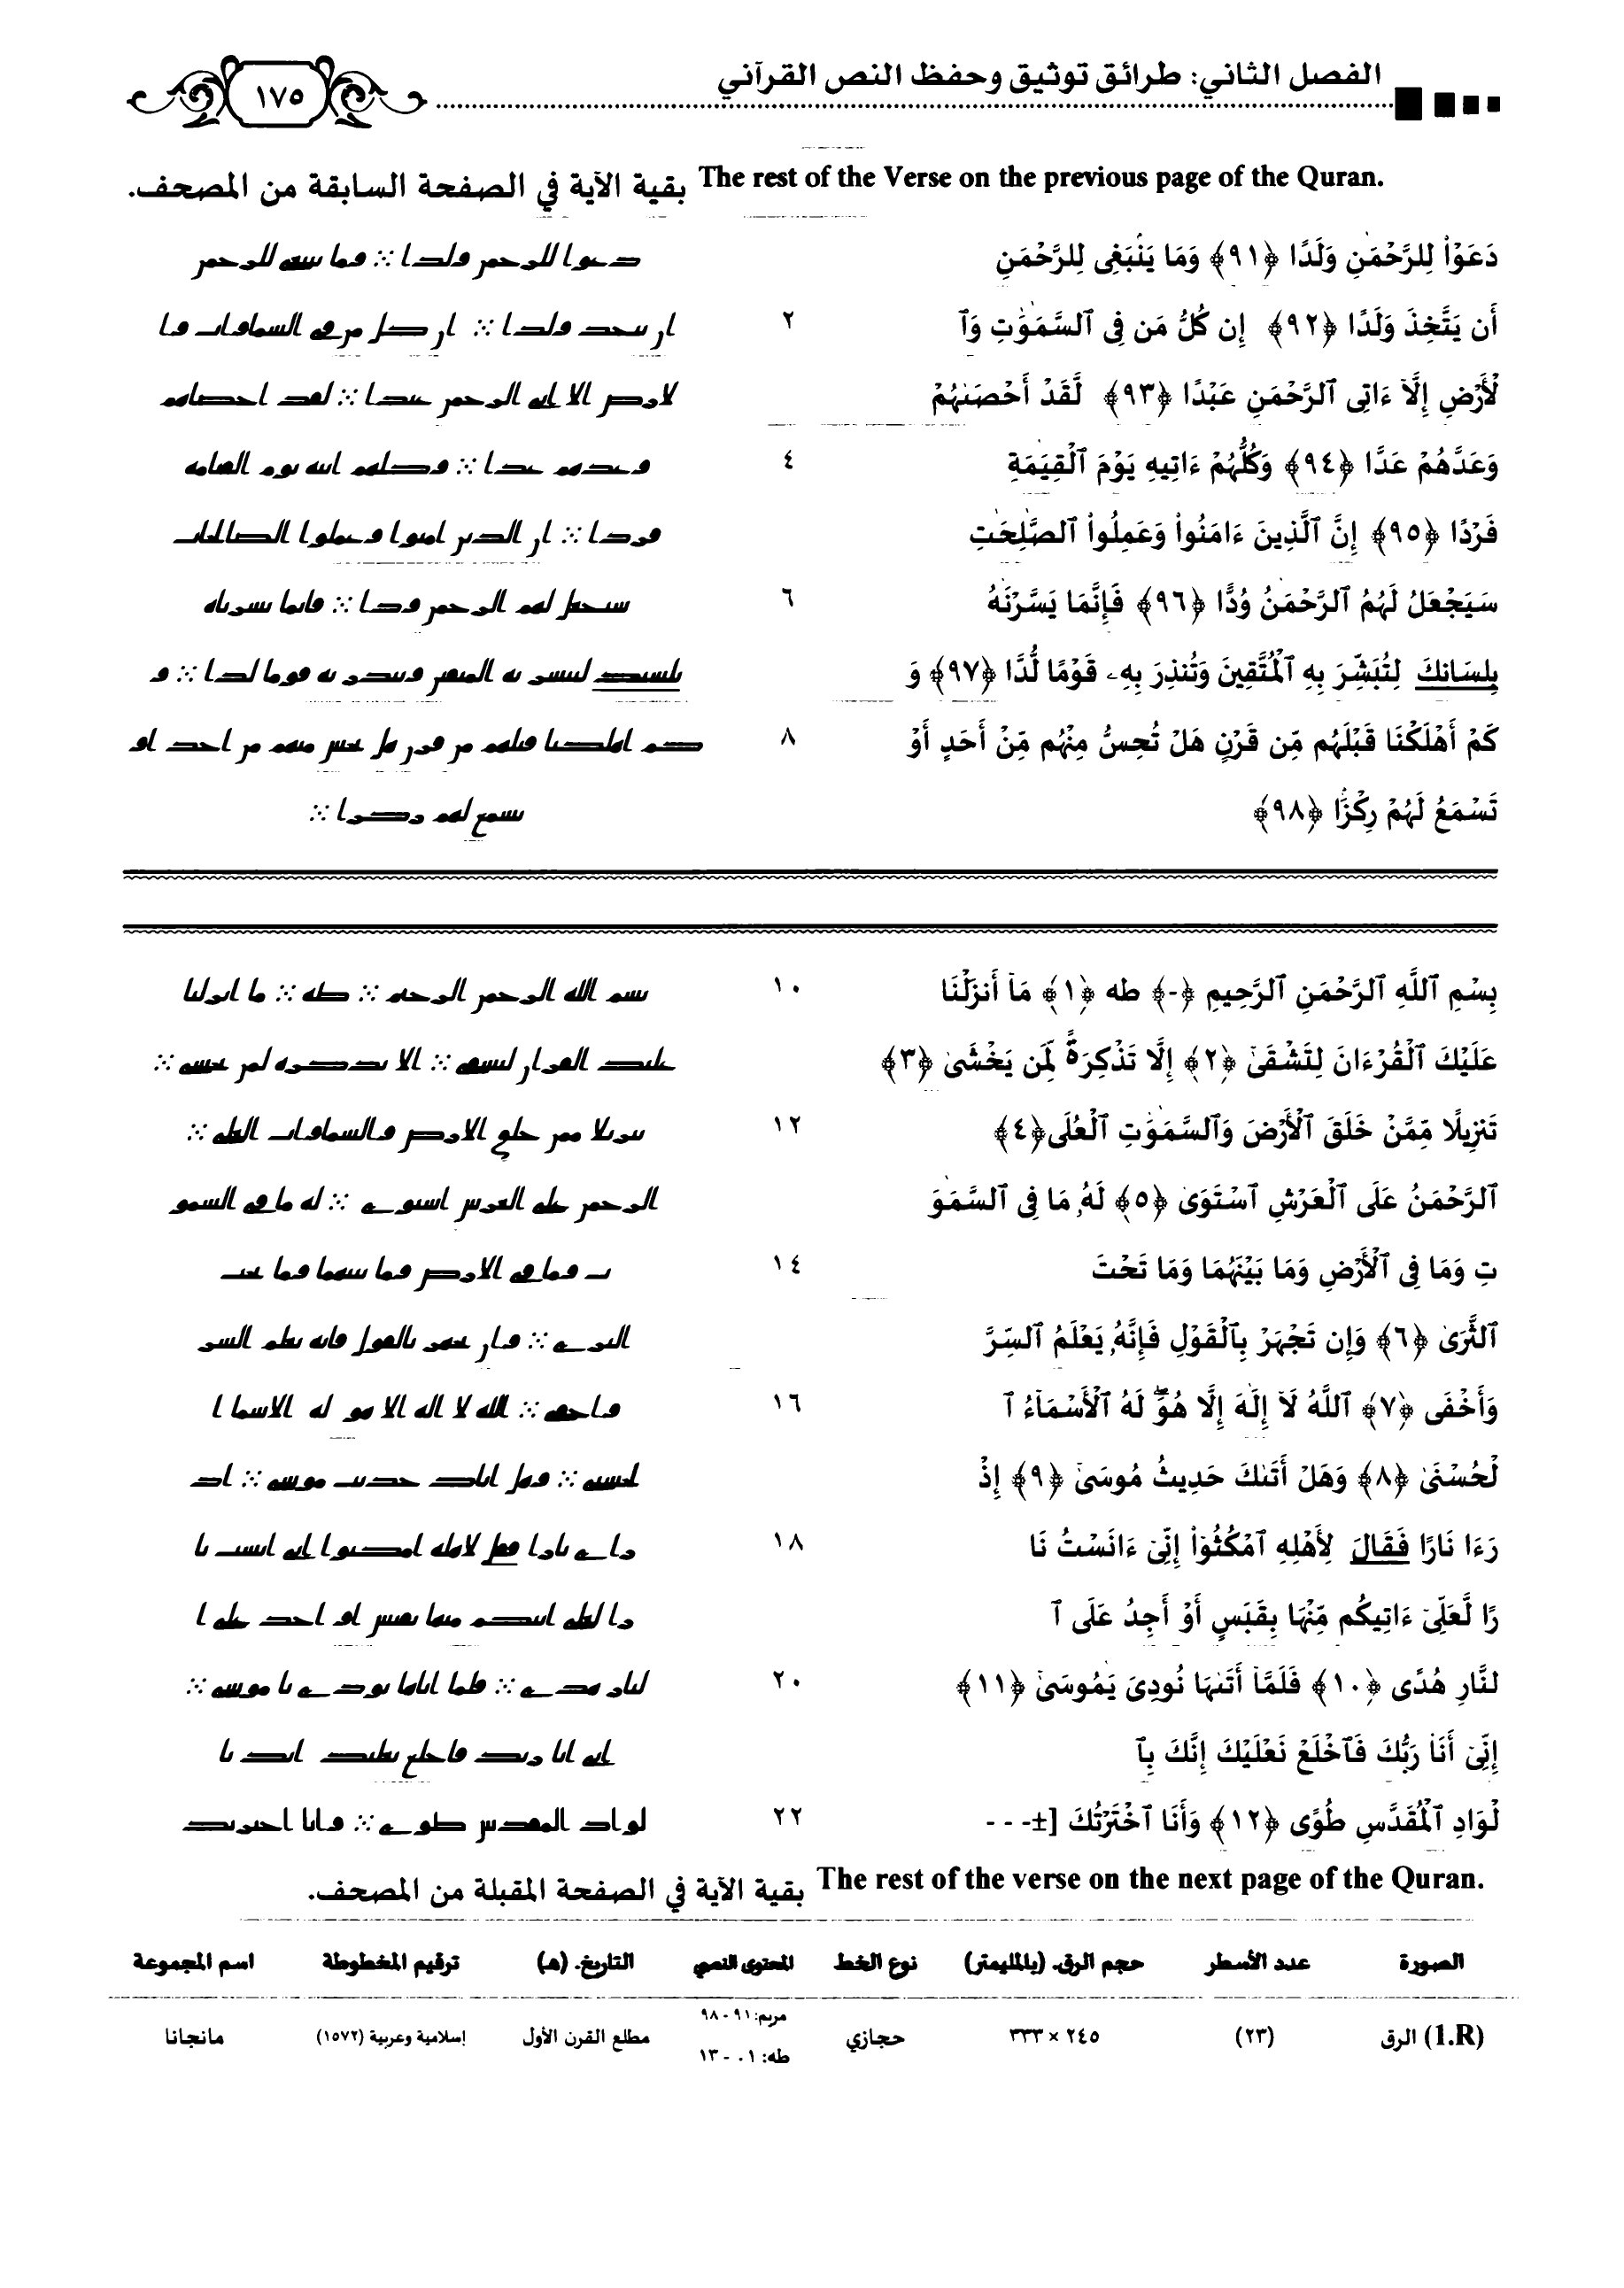 الفصل الثاني: طرائق توثيق وحفظ النص القرآني
١٧٥
The rest of the Verse on the previous page of the Quran. بقية الآية في الصفحة السابقة من المصحف.
دَعَوْا۟ لِلرَّحْمَٰنِ وَلَدًا ﴿٩١﴾ وَمَا يَنۢبَغِى لِلرَّحْمَٰنِ
دعوا للرحمن ولدا ⁘ وما ينبغي للرحمن
أَن يَتَّخِذَ وَلَدًا ﴿٩٢﴾ إِن كُلُّ مَن فِى ٱلسَّمَٰوَٰتِ وَٱ
٢
ان يتخذ ولدا ⁘ ان كل من في السماوات وا
لْأَرْضِ إِلَّآ ءَاتِى ٱلرَّحْمَٰنِ عَبْدًا ﴿٩٣﴾ لَّقَدْ أَحْصَىٰهُمْ
لارض الا اتي الرحمن عبدا ⁘ لقد احصاهم
وَعَدَّهُمْ عَدًّا ﴿٩٤﴾ وَكُلُّهُمْ ءَاتِيهِ يَوْمَ ٱلْقِيَٰمَةِ
٤
وعدهم عدا ⁘ وكلهم اتيه يوم القيامه
فَرْدًا ﴿٩٥﴾ إِنَّ ٱلَّذِينَ ءَامَنُوا۟ وَعَمِلُوا۟ ٱلصَّٰلِحَٰتِ
فردا ⁘ ان الذين امنوا وعملوا الصالحات
سَيَجْعَلُ لَهُمُ ٱلرَّحْمَٰنُ وُدًّا ﴿٩٦﴾ فَإِنَّمَا يَسَّرْنَٰهُ
٦
سيجعل لهم الرحمن ودا ⁘ فانما يسرناه
بِلِسَانِكَ لِتُبَشِّرَ بِهِ ٱلْمُتَّقِينَ وَتُنذِرَ بِهِۦ قَوْمًا لُّدًّا ﴿٩٧﴾ وَ
بلسنك لتبشر به المتقين وتنذر به قوما لدا ⁘ و
كَمْ أَهْلَكْنَا قَبْلَهُم مِّن قَرْنٍ هَلْ تُحِسُّ مِنْهُم مِّنْ أَحَدٍ أَوْ
٨
كم اهلكنا قبلهم من قرن هل تحس منهم من احد او
تَسْمَعُ لَهُمْ رِكْزًۢا ﴿٩٨﴾
تسمع لهم ركزا ⁘
بِسْمِ ٱللَّهِ ٱلرَّحْمَٰنِ ٱلرَّحِيمِ ﴿-﴾ طه ﴿١﴾ مَآ أَنزَلْنَا
١٠
بسم الله الرحمن الرحيم ⁘ طه ⁘ ما انزلنا
عَلَيْكَ ٱلْقُرْءَانَ لِتَشْقَىٰٓ ﴿٢﴾ إِلَّا تَذْكِرَةً لِّمَن يَخْشَىٰ ﴿٣﴾
عليك القران لتشقى ⁘ الا تذكره لمن يخشى ⁘
تَنزِيلًا مِّمَّنْ خَلَقَ ٱلْأَرْضَ وَٱلسَّمَٰوَٰتِ ٱلْعُلَى ﴿٤﴾
١٢
تنزيلا ممن خلق الارض والسماوات العلى ⁘
ٱلرَّحْمَٰنُ عَلَى ٱلْعَرْشِ ٱسْتَوَىٰ ﴿٥﴾ لَهُۥ مَا فِى ٱلسَّمَٰوَ
الرحمن على العرش استوى ⁘ له ما في السمو
ٰتِ وَمَا فِى ٱلْأَرْضِ وَمَا بَيْنَهُمَا وَمَا تَحْتَ
١٤
ت وما في الارض وما بينهما وما تحت
ٱلثَّرَىٰ ﴿٦﴾ وَإِن تَجْهَرْ بِٱلْقَوْلِ فَإِنَّهُۥ يَعْلَمُ ٱلسِّرَّ
الثرى ⁘ وان تجهر بالقول فانه يعلم السر
وَأَخْفَى ﴿٧﴾ ٱللَّهُ لَآ إِلَٰهَ إِلَّا هُوَۖ لَهُ ٱلْأَسْمَآءُ ٱ
١٦
واخفى ⁘ الله لا اله الا هو له الاسما ا
لْحُسْنَىٰ ﴿٨﴾ وَهَلْ أَتَىٰكَ حَدِيثُ مُوسَىٰٓ ﴿٩﴾ إِذْ
لحسنى ⁘ وهل اتاك حديث موسى ⁘ اذ
رَءَا نَارًا فَقَالَ لِأَهْلِهِ ٱمْكُثُوٓا۟ إِنِّىٓ ءَانَسْتُ نَا
١٨
راى نارا فقل لاهله امكثوا اني انست نا
رًا لَّعَلِّىٓ ءَاتِيكُم مِّنْهَا بِقَبَسٍ أَوْ أَجِدُ عَلَى ٱ
را لعلي اتيكم منها بقبس او اجد على ا
لنَّارِ هُدًى ﴿١٠﴾ فَلَمَّآ أَتَىٰهَا نُودِىَ يَٰمُوسَىٰٓ ﴿١١﴾
٢٠
لنار هدى ⁘ فلما اتاها نودي يا موسى ⁘
إِنِّىٓ أَنَا۠ رَبُّكَ فَٱخْلَعْ نَعْلَيْكَ إِنَّكَ بِٱ
اني انا ربك فاخلع نعليك انك با
لْوَادِ ٱلْمُقَدَّسِ طُوًى ﴿١٢﴾ وَأَنَا ٱخْتَرْتُكَ [±- - -
٢٢
لواد المقدس طوى ⁘ وانا اخترتك
The rest of the verse on the next page of the Quran. بقية الآية في الصفحة المقبلة من المصحف.
الصورة عدد الأسطر حجم الرق. (بالمليمتر) نوع الخط المحتوى النصي التاريخ. (هـ) ترقيم المخطوطة اسم المجموعة
(1.R) الرق (٢٣) ٢٤٥ × ٣٣٣ حجازي مريم: ٩١ - ٩٨ مطلع القرن الأول إسلامية وعربية (١٥٧٢) مانجانا
طه: ٠١ - ١٣